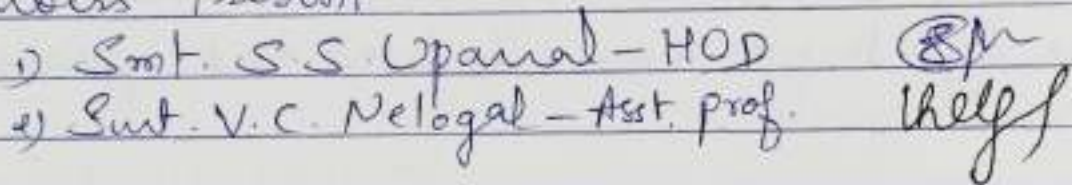 1) Smt. S.S. Upanal - HOD
2) Smt. V.C. Nelogal - Asst. prof.